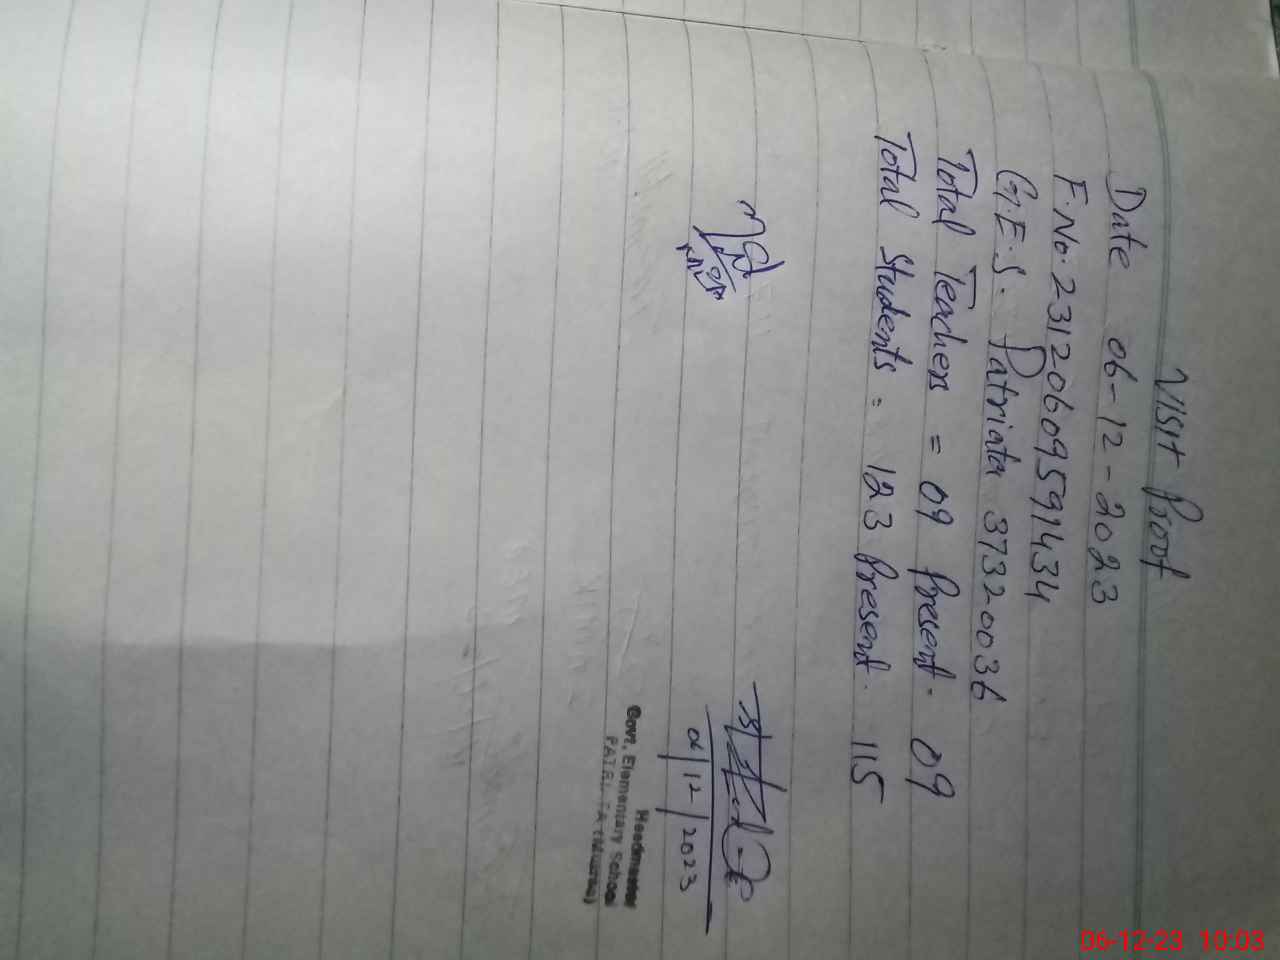 Visit Proof
Date 06-12-2023
F.No. 231206095991434
G.E.S. Patriata 37320036
Total Teachers = 09 Present - 09
Total Students = 123 Present. 115
06/12/2023
Headmaster
Govt. Elementary School
06-12-23 10:03